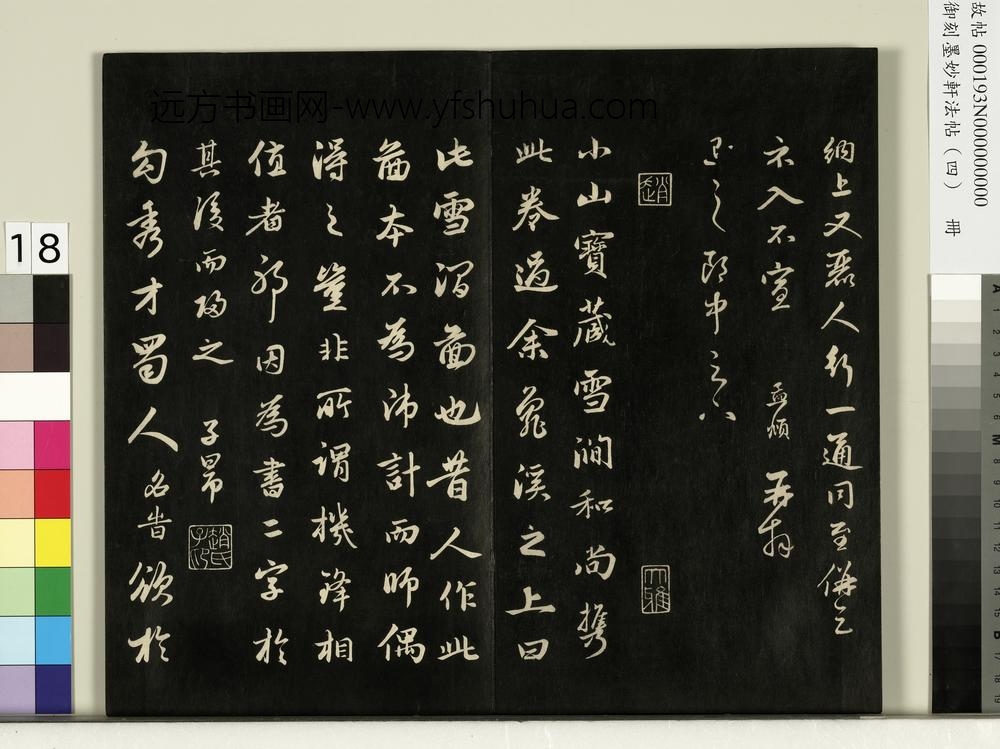 故帖 000193N000000000
御刻墨妙軒法帖（四） 冊
远方书画网-www.yfshuhua.com
納上又麗人行一通同至併乞
示入不宣 孟頫 再拜
之 郎中
趙
小山寶藏雪澗和尚攜
大雅
此卷過余苕溪之上曰
此雪澗畫也昔人作此
畫本不為沛計而師偶
得之豈非所謂機鋒相
值者耶因為書二字於
其後而歸之 子昂
趙氏子印
勾秀才蜀人名昔欲於
18